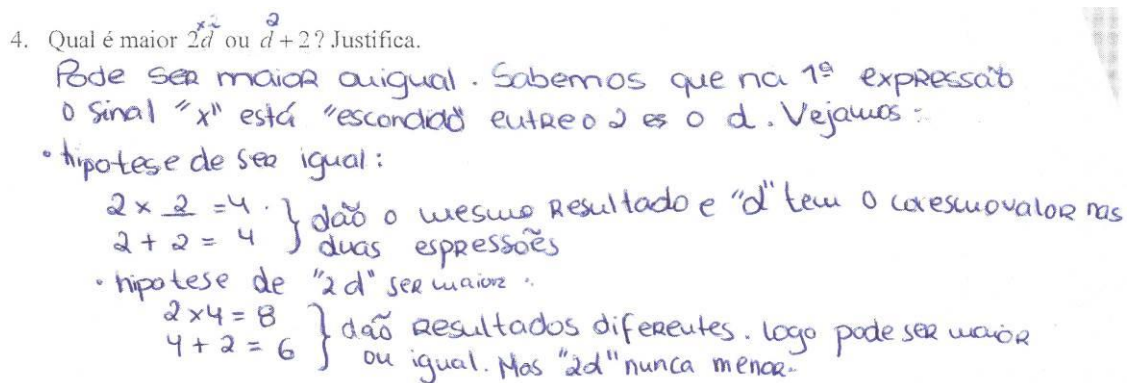 4. Qual é maior 2d ou d + 2? Justifica.
x2 2
Pode ser maior ou igual. Sabemos que na 1ª expressão
o sinal "x" está "escondido" entre o 2 e o d. Vejamos:
• hipotese de ser igual:
2 × 2 = 4.
2 + 2 = 4 } dão o mesmo resultado e "d" tem o mesmo valor nas
duas espressões
• hipotese de "2d" ser maior:
2 × 4 = 8
4 + 2 = 6 } dão resultados diferentes. logo pode ser maior
ou igual. Mas "2d" nunca menor.